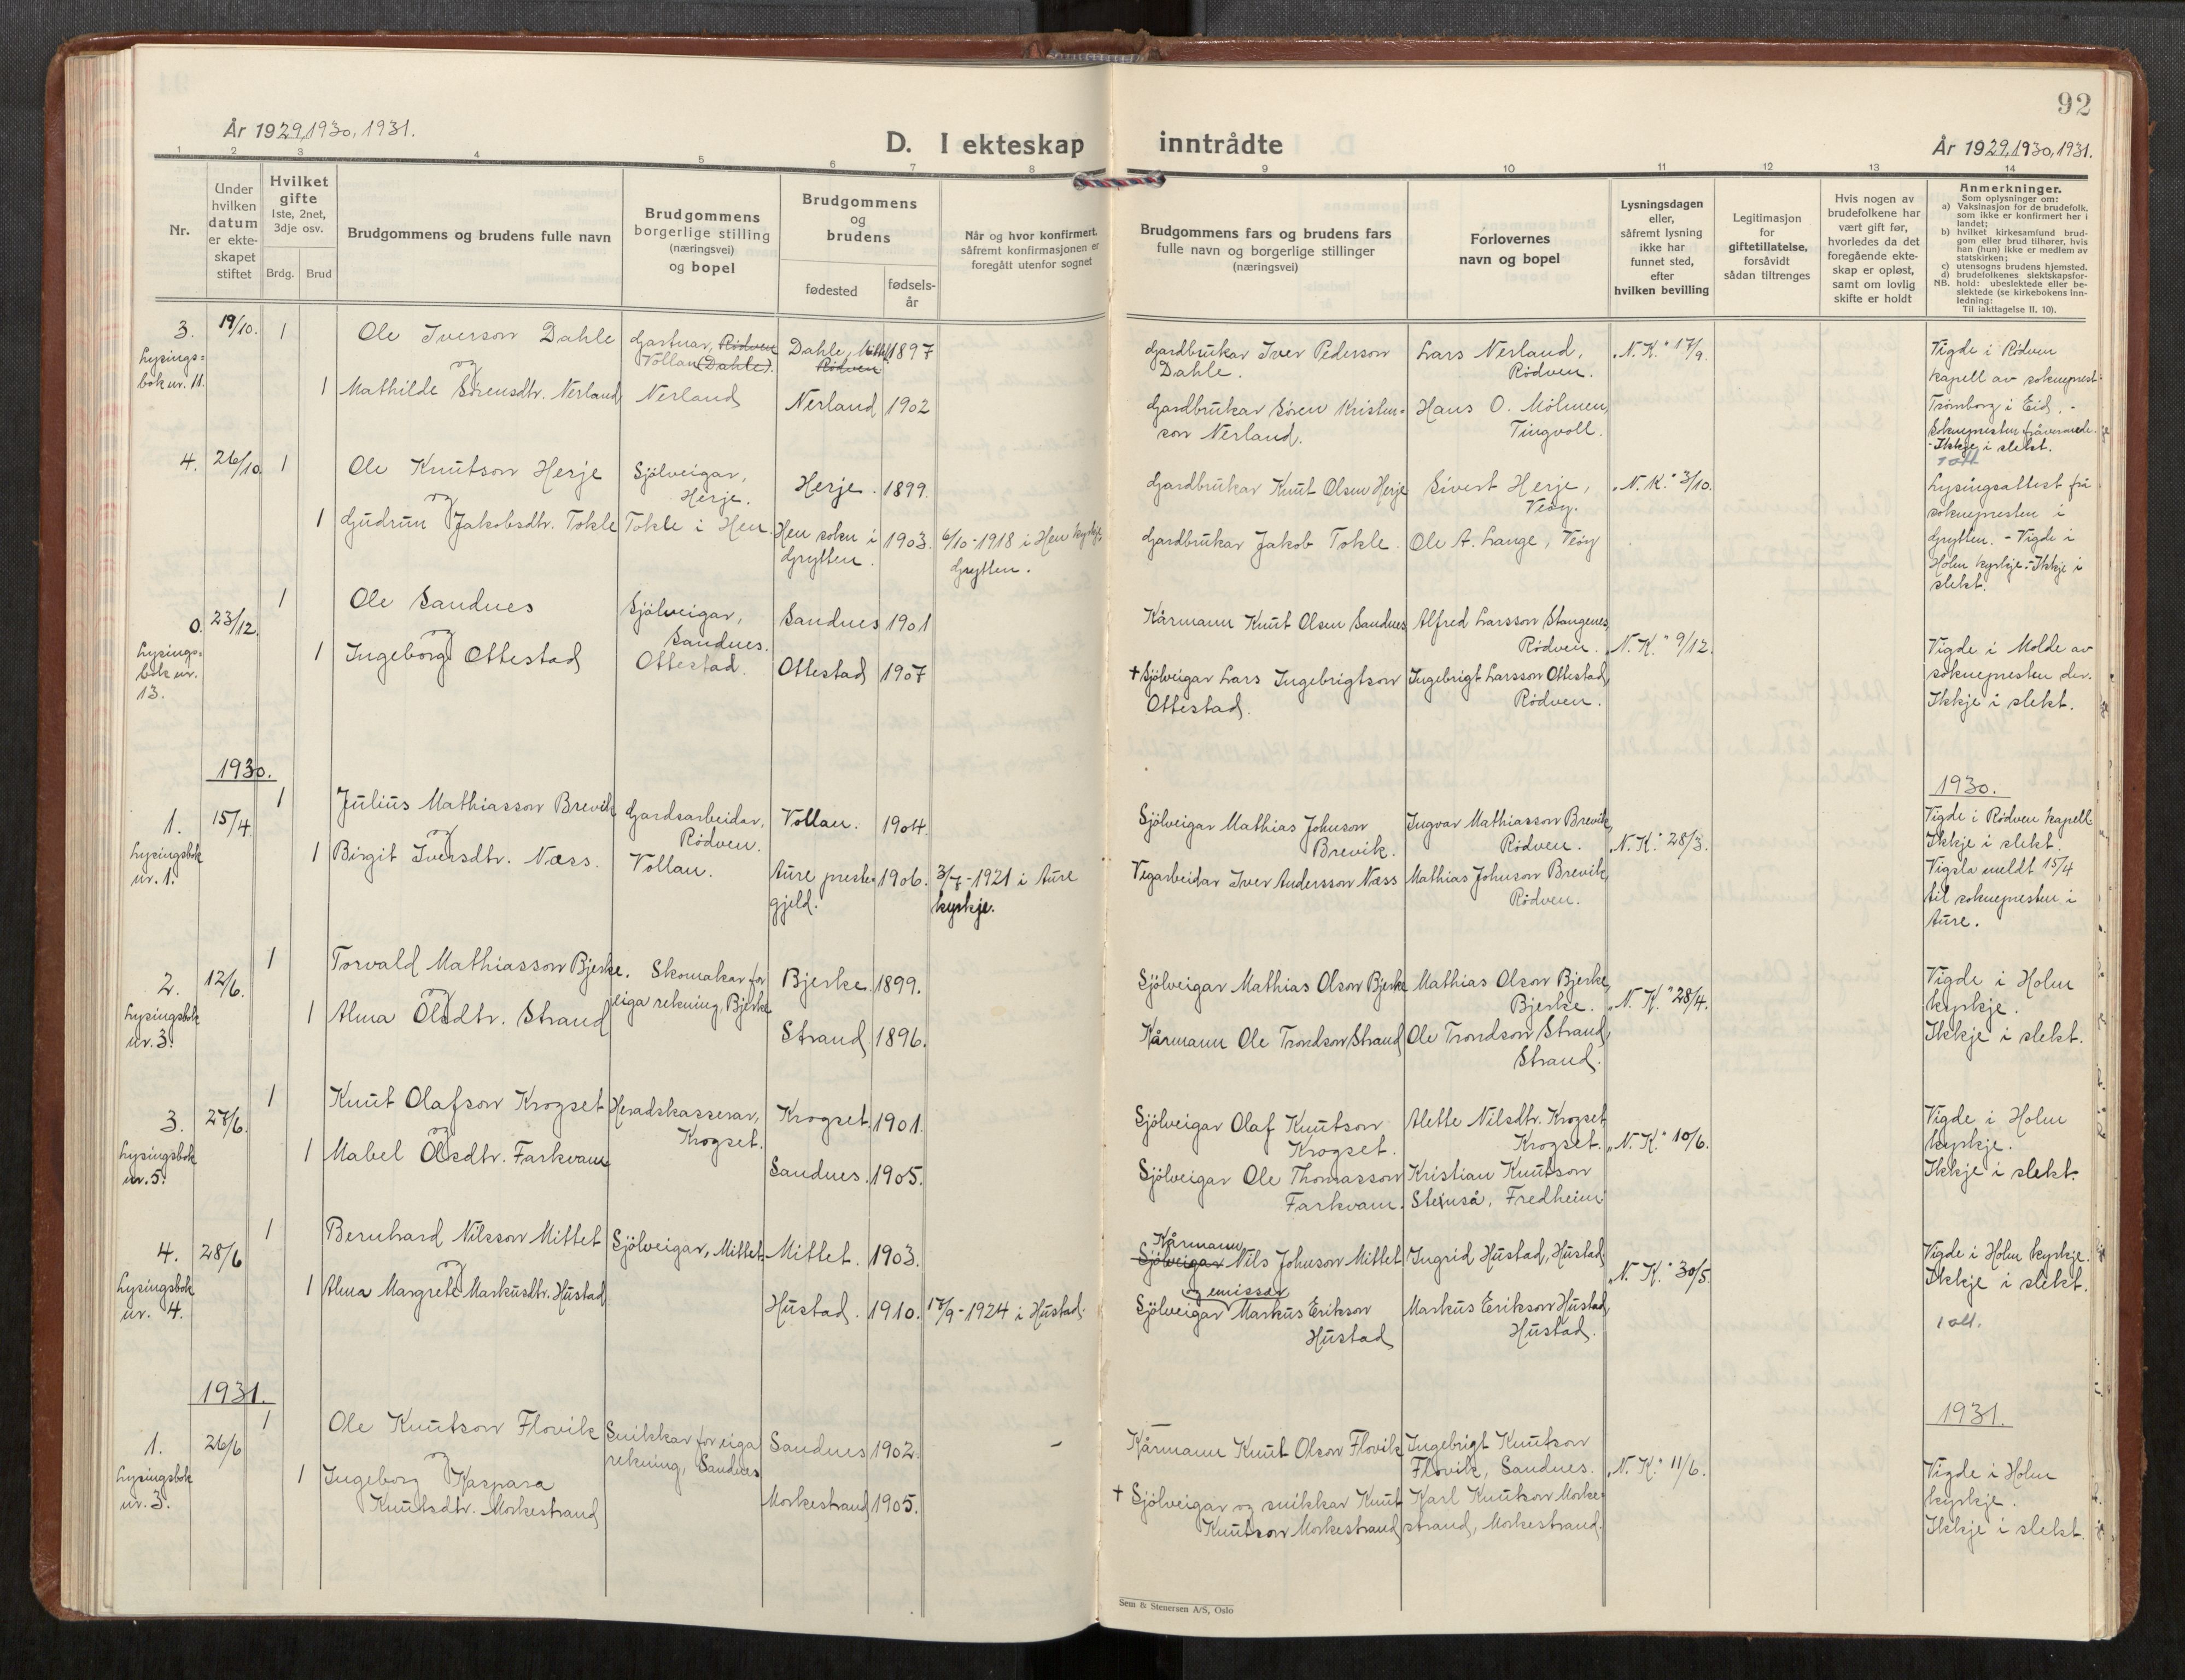 92
År 1929, 1930, 1931.
D. I ekteskap inntrådte
År 1929, 1930, 1931.
1 2 3 4 5 6 7 8 9 10 11 12 13 14
Nr.
Under
hvilken
datum
er ekte-
skapet
stiftet
Hvilket
gifte
1ste, 2net,
3dje osv.
Brdg. Brud
Brudgommens og brudens fulle navn
Brudgommens
borgerlige stilling
(næringsvei)
og bopel
Brudgommens
og
brudens
fødested
fødsels-
år
Når og hvor konfirmert,
såfremt konfirmasjonen er
foregått utenfor sognet
Brudgommens fars og brudens fars
fulle navn og borgerlige stillinger
(næringsvei)
Forlovernes
navn og bopel
Lysningsdagen
eller,
såfremt lysning
ikke har
funnet sted,
efter
hvilken bevilling
Legitimasjon
for
giftetillatelse,
forsåvidt
sådan tiltrenges
Hvis nogen av
brudefolkene har
vært gift før,
hvorledes da det
foregående ekte-
skap er opløst,
samt om lovlig
skifte er holdt
Anmerkninger.
Som oplysninger om:
a) Vaksinasjon for de brudefolk,
som ikke er konfirmert her i
landet;
b) hvilket kirkesamfund brud-
gom eller brud tilhører, hvis
han (hun) ikke er medlem av
statskirken;
c) utensogns brudens hjemsted.
d) brudefolkenes slektskapsfor-
NB. hold: ubeslektede eller be-
slektede (se kirkebokens inn-
ledning:
Til iakttagelse II. 10).
3. 19/10. 1
Lysings-
bok nr. 11.
Ole Iverson Dahle
og
1 Mathilde Sørensdtr. Nerland
Gartnar, Rødven
Tollan (Dahle).
Nerland
Dahle,
Rødven
1897
Nerland 1902
Gardbrukar Iver Pederson
Dahle.
Gardbrukar Søren Kristen-
son Nerland.
Lars Nerland,
Rødven.
Hans O. Mölmen,
Tingvoll.
"N. K." 17/9.
Vigde i Rødven
kapell av sokneprest
Tromborg i Eid. -
Soknepresten fråverande.
- Ikkje i slekt.
1 att
4. 26/10 1
Ole Knutson Herje
og
1 Gudrun Jakobsdtr. Tokle
Sjölveigar,
Herje.
Tokle i Hen.
Herje. 1899.
Hen sokn i
Grytten.
1903.
6/10-1918 i Hen kyrkje,
Grytten.
Gardbrukar Knut Olsen Herje
Gardbrukar Jakob Tokle.
Sivert Herje,
Veöy.
Ole A. Lange, Veöy
"N. K." 3/10.
Lysingsattest frå
soknepresten i
Grytten. - Vigde i
Holm kyrkje. - Ikkje i
slekt.
0. 23/12. 1
Lysings-
bok nr.
13.
Ole Sandnes
og
1 Ingeborg Ottestad
Sjölveigar,
Sandnes.
Ottestad.
Sandnes 1901
Ottestad 1907
Kårmann Knut Olsen Sandnes
† Sjölveigar Lars Ingebrigtson
Ottestad.
Alfred Larsson Stangenes,
Rødven.
Ingebrigt Larsson Ottestad,
Rødven.
"N. K." 9/12.
Vigde i Molde av
soknepresten der.
Ikkje i slekt.
1930.
1930.
1. 15/4. 1
Lysingsbok
nr. 1.
Julius Mathiasson Brevik
og
1 Birgit Iversdtr. Næss.
Gardsarbeidar,
Rödven.
Vollan.
Vollan. 1904.
Aure preste-
gjeld.
1906.
3/7-1921 i Aure
kyrkje.
Sjölveigar Mathias Johnson
Brevik.
Vegarbeidar Iver Andersson Næss
Ingvar Mathiasson Brevik,
Rödven.
Mathias Johnson Brevik,
Rödven.
"N. K." 28/3.
Vigde i Rödven kapell
Ikkje i slekt.
Vigsla meldt 15/4
til soknepresten i
Aure.
2. 12/6. 1
Lysingsbok
nr. 3.
Torvald Mathiasson Bjerke.
og
1 Alma Olsdtr. Strand
Skomakar for
eiga rekning, Bjerke
Bjerke. 1899.
Strand 1896.
Sjölveigar Mathias Olson Bjerke
Kårmann Ole Trondson Strand
Mathias Olson Bjerke,
Bjerke.
Ole Trondson Strand,
Strand.
"N. K." 28/4.
Vigde i Holm
kyrkje.
Ikkje i slekt.
3. 27/6. 1
Lysingsbok
nr. 5.
Knut Olafson Krogset
og
1 Mabel Olsdtr. Farkvam
Heradskasserar,
Krogset.
Krogset. 1901.
Sandnes. 1905.
Sjölveigar Olaf Knutson
Krogset.
Sjölveigar Ole Thomasson
Farkvam.
Alette Nilsdtr. Krogset
Krogset.
Kristian Knutson
Stenså, Fredheim
"N. K." 10/6.
Vigde i Holm
kyrkje.
Ikkje i slekt.
4. 28/6 1
Lysingsbok
nr. 4.
Bernhard Nilsson Mittet
og
1 Alma Margrete Markusdtr. Hustad
Sjölveigar, Mittet.
Mittet. 1903.
Hustad. 1910.
/9-1924 i Hustad.
Kårmann
Sjölveigar Nils Johnson Mittet
og emissær
Sjölveigar Markus Erikson
Hustad
Ingrid Hustad, Hustad
Markus Erikson Hustad,
Hustad.
"N. K." 30/5.
Vigde i Holm kyrkje.
Ikkje i slekt.
1 att.
1931.
1931.
1. 26/6 1
Lysingsbok
nr. 3.
Ole Knutson Flovik
og
1 Ingeborg Kaspara
Knutsdtr. Morkestrand
Snikkar for eiga
rekning, Sandnes
Sandnes 1902.
Morkestrand 1905.
Kårmann Knut Olson Flovik
† Sjölveigar og snikkar Knut
Knutson Morkestrand
Ingebrigt Knutson
Flovik, Sandnes.
Karl Knutson Morke-
strand, Morkestrand.
"N. K." 11/6.
Vigde i Holm
kyrkje.
Ikkje i slekt.
Sem & Stenersen A/S, Oslo